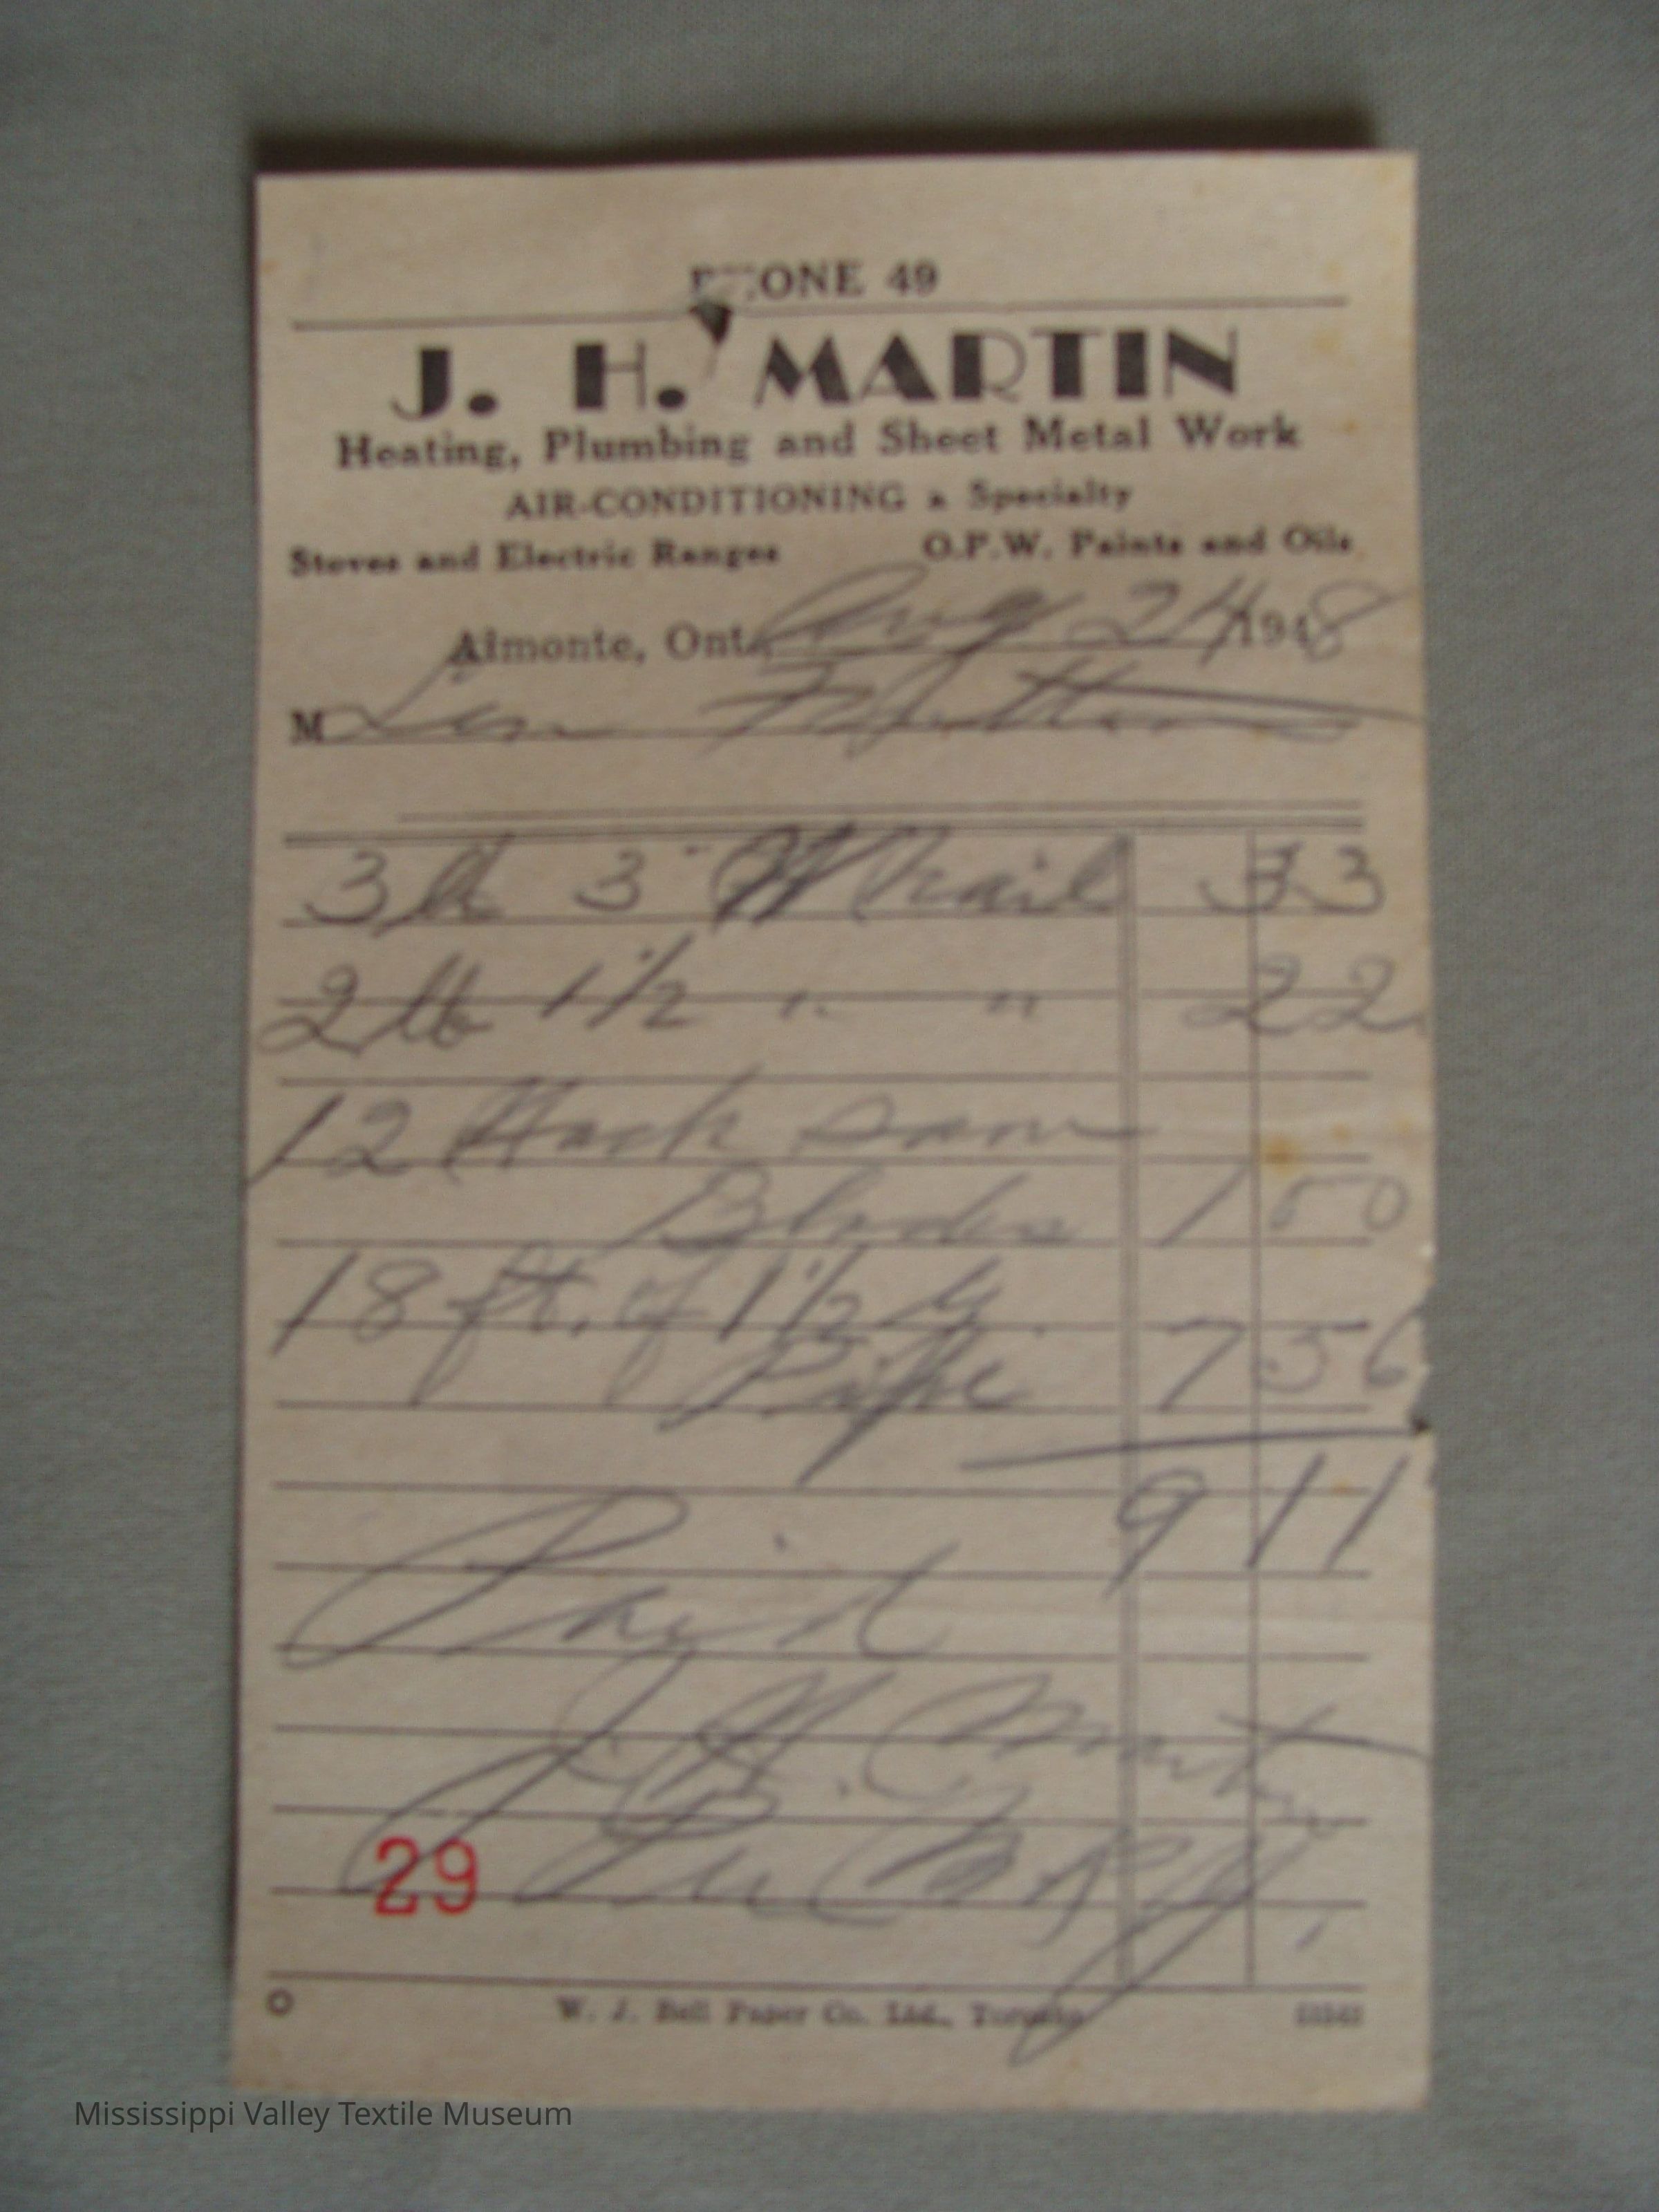 PHONE 49
J. H. MARTIN
Heating, Plumbing and Sheet Metal Work
AIR-CONDITIONING a Specialty
Stoves and Electric Ranges O.P.W. Paints and Oils
Almonte, Ont. Aug 24 1948
M
3 lb 3" nail 33
2 lb 1 1/2 " " 22
12 Hack saw
Blades 1 50
18 ft. of 1 1/2 G
Pipe 7 56
9 11
Paid
J. H. Martin
29
W. J. Bell Paper Co. Ltd., Toronto
Mississippi Valley Textile Museum